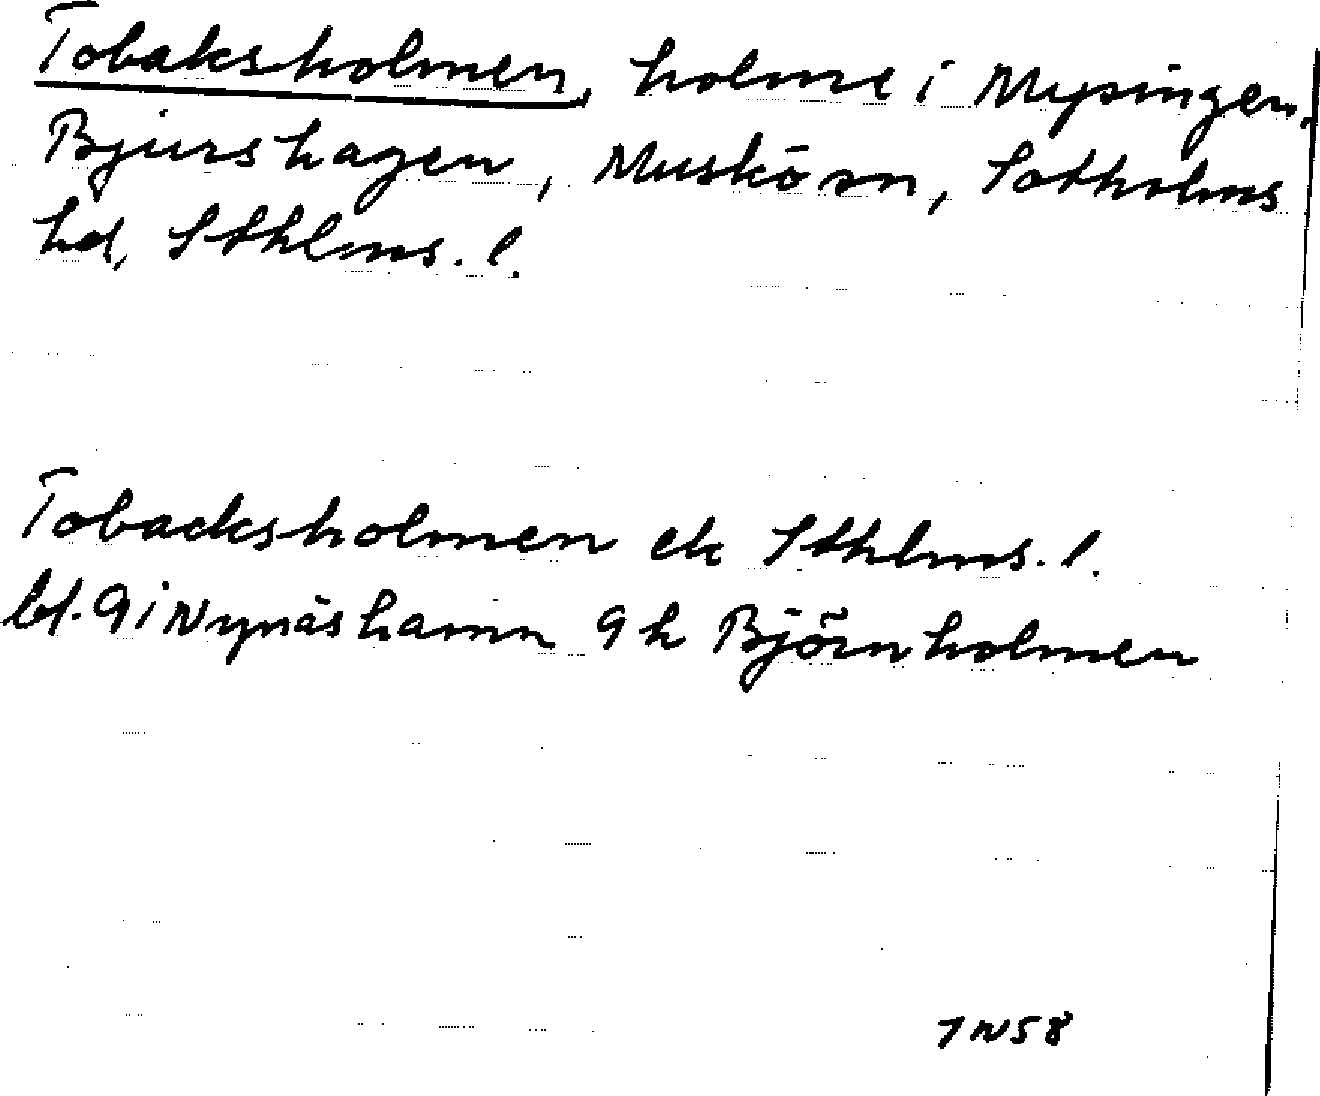 Tobaksholmen, holme i Mysingen,
Bjurshagen, Muskö sn, Sotholms
hd, Sthlms. l.
Tobacksholmen ek Sthlms. l.
bl. 9 i Nynäshamn 9 k Björnholmen
7N58